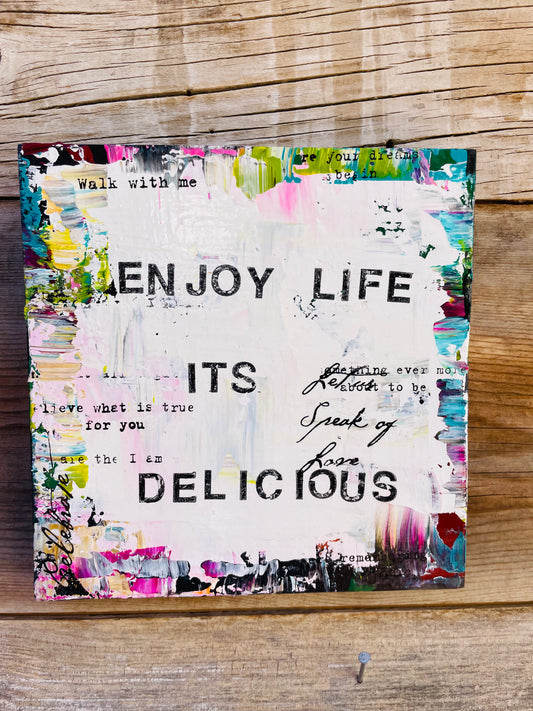 re your dreams
begin
Walk with me
ENJOY LIFE
ITS
omething ever mor
about to be
Let us
lieve what is true
for you
Speak of
are the I am
Love
DELICIOUS
celebrate